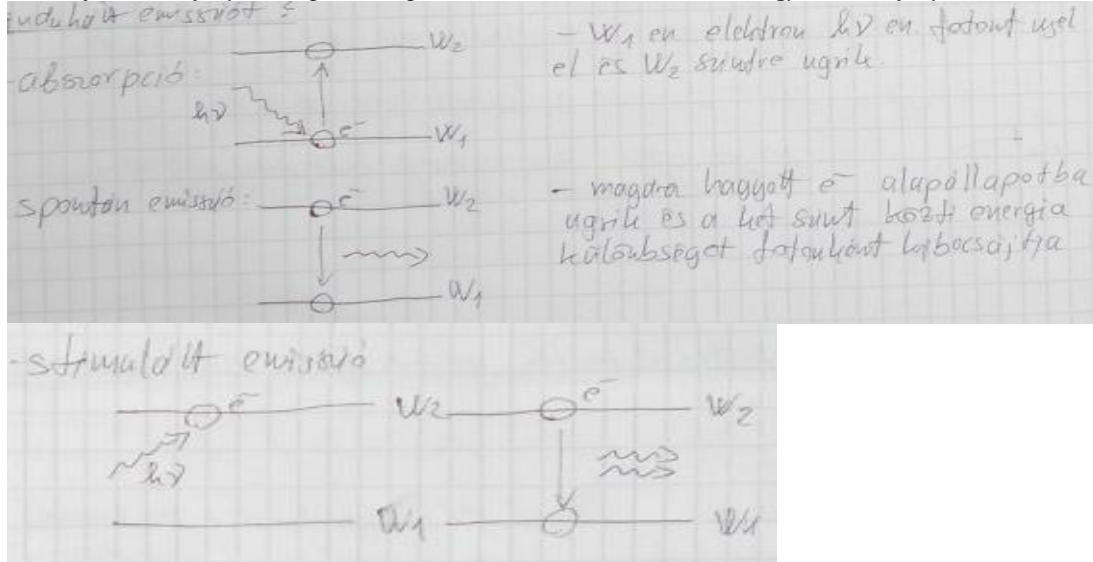 indukált emissziót :
W₂
- W₁ en elektron hν en fotont nyel
el és W₂ szintre ugrik.
- abszorpció:
hν
e⁻
W₁
spontán emisszió:
e⁻
W₂
- magára hagyott e⁻ alapállapotba
ugrik és a két szint közti energia
különbséget fotonként kibocsájtja
W₁
- stimulált emisszió
e⁻
W₂
e⁻
W₂
hν
W₁
W₁